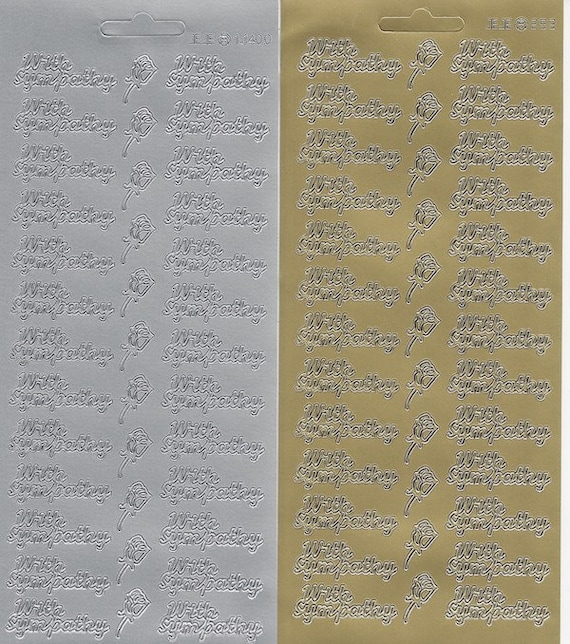 With With
Sympathy Sympathy
With With
Sympathy Sympathy
With With
Sympathy Sympathy
With With
Sympathy Sympathy
With With
Sympathy Sympathy
With With
Sympathy Sympathy
With With
Sympathy Sympathy
With With
Sympathy Sympathy
With With
Sympathy Sympathy
With With
Sympathy Sympathy
With With
Sympathy Sympathy
With With
Sympathy Sympathy
With With
Sympathy Sympathy
With With
Sympathy Sympathy
With With
Sympathy Sympathy
With With
Sympathy Sympathy
With With
Sympathy Sympathy
With With
Sympathy Sympathy
With With
Sympathy Sympathy
With With
Sympathy Sympathy
With With
Sympathy Sympathy
With With
Sympathy Sympathy
With With
Sympathy Sympathy
With With
Sympathy Sympathy
With With
Sympathy Sympathy
With With
Sympathy Sympathy